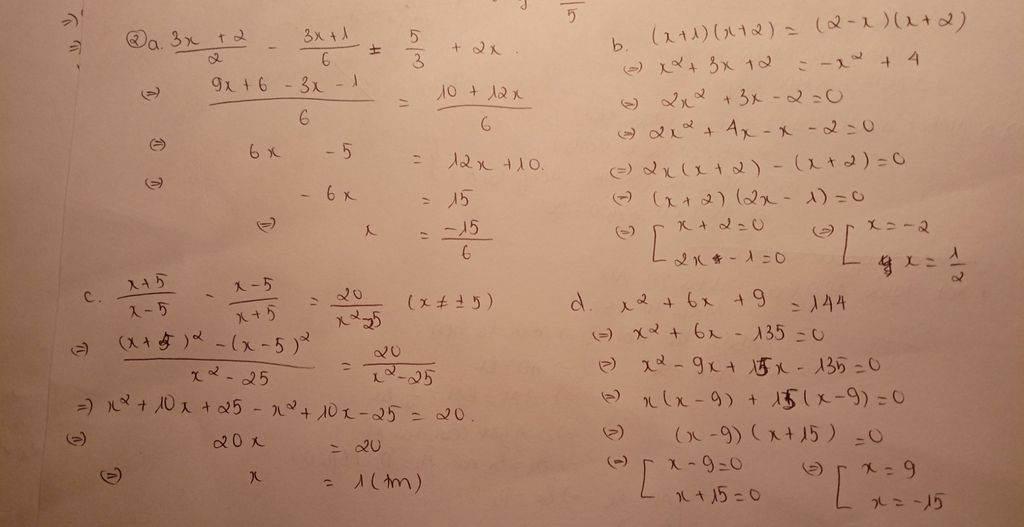 5
=>
=>
② a. (3x + 2)/2 - (3x + 1)/6 = 5/3 + 2x.
(=) (9x + 6 - 3x - 1)/6 = (10 + 12x)/6
(=) 6x - 5 = 12x + 10.
(=) - 6x = 15
(=) x = -15/6
b. (x + 1)(x + 2) = (2 - x)(x + 2)
(=) x² + 3x + 2 = -x² + 4
(=) 2x² + 3x - 2 = 0
(=) 2x² + 4x - x - 2 = 0
(=) 2x(x + 2) - (x + 2) = 0
(=) (x + 2)(2x - 1) = 0
(=) [ x + 2 = 0 (=) [ x = -2
2x - 1 = 0 x = 1/2
c. (x + 5)/(x - 5) - (x - 5)/(x + 5) = 20/(x² - 25) (x ≠ ± 5)
(=) ((x + 5)² - (x - 5)²)/(x² - 25) = 20/(x² - 25)
=) x² + 10x + 25 - x² + 10x - 25 = 20.
(=) 20x = 20
(=) x = 1 (tm)
d. x² + 6x + 9 = 144
(=) x² + 6x - 135 = 0
(=) x² - 9x + 15x - 135 = 0
(=) x(x - 9) + 15(x - 9) = 0
(=) (x - 9)(x + 15) = 0
(=) [ x - 9 = 0 (=) [ x = 9
x + 15 = 0 x = -15